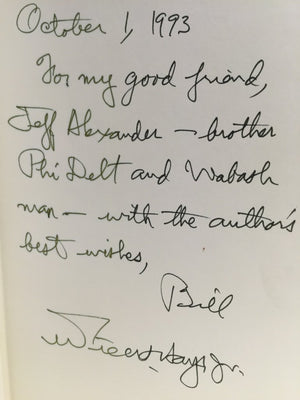 October 1, 1993
For my good friend,
Jeff Alexander — brother
Phi Delt and Wabash
man — with the author's
best wishes,
Bill
Hays, Jr.